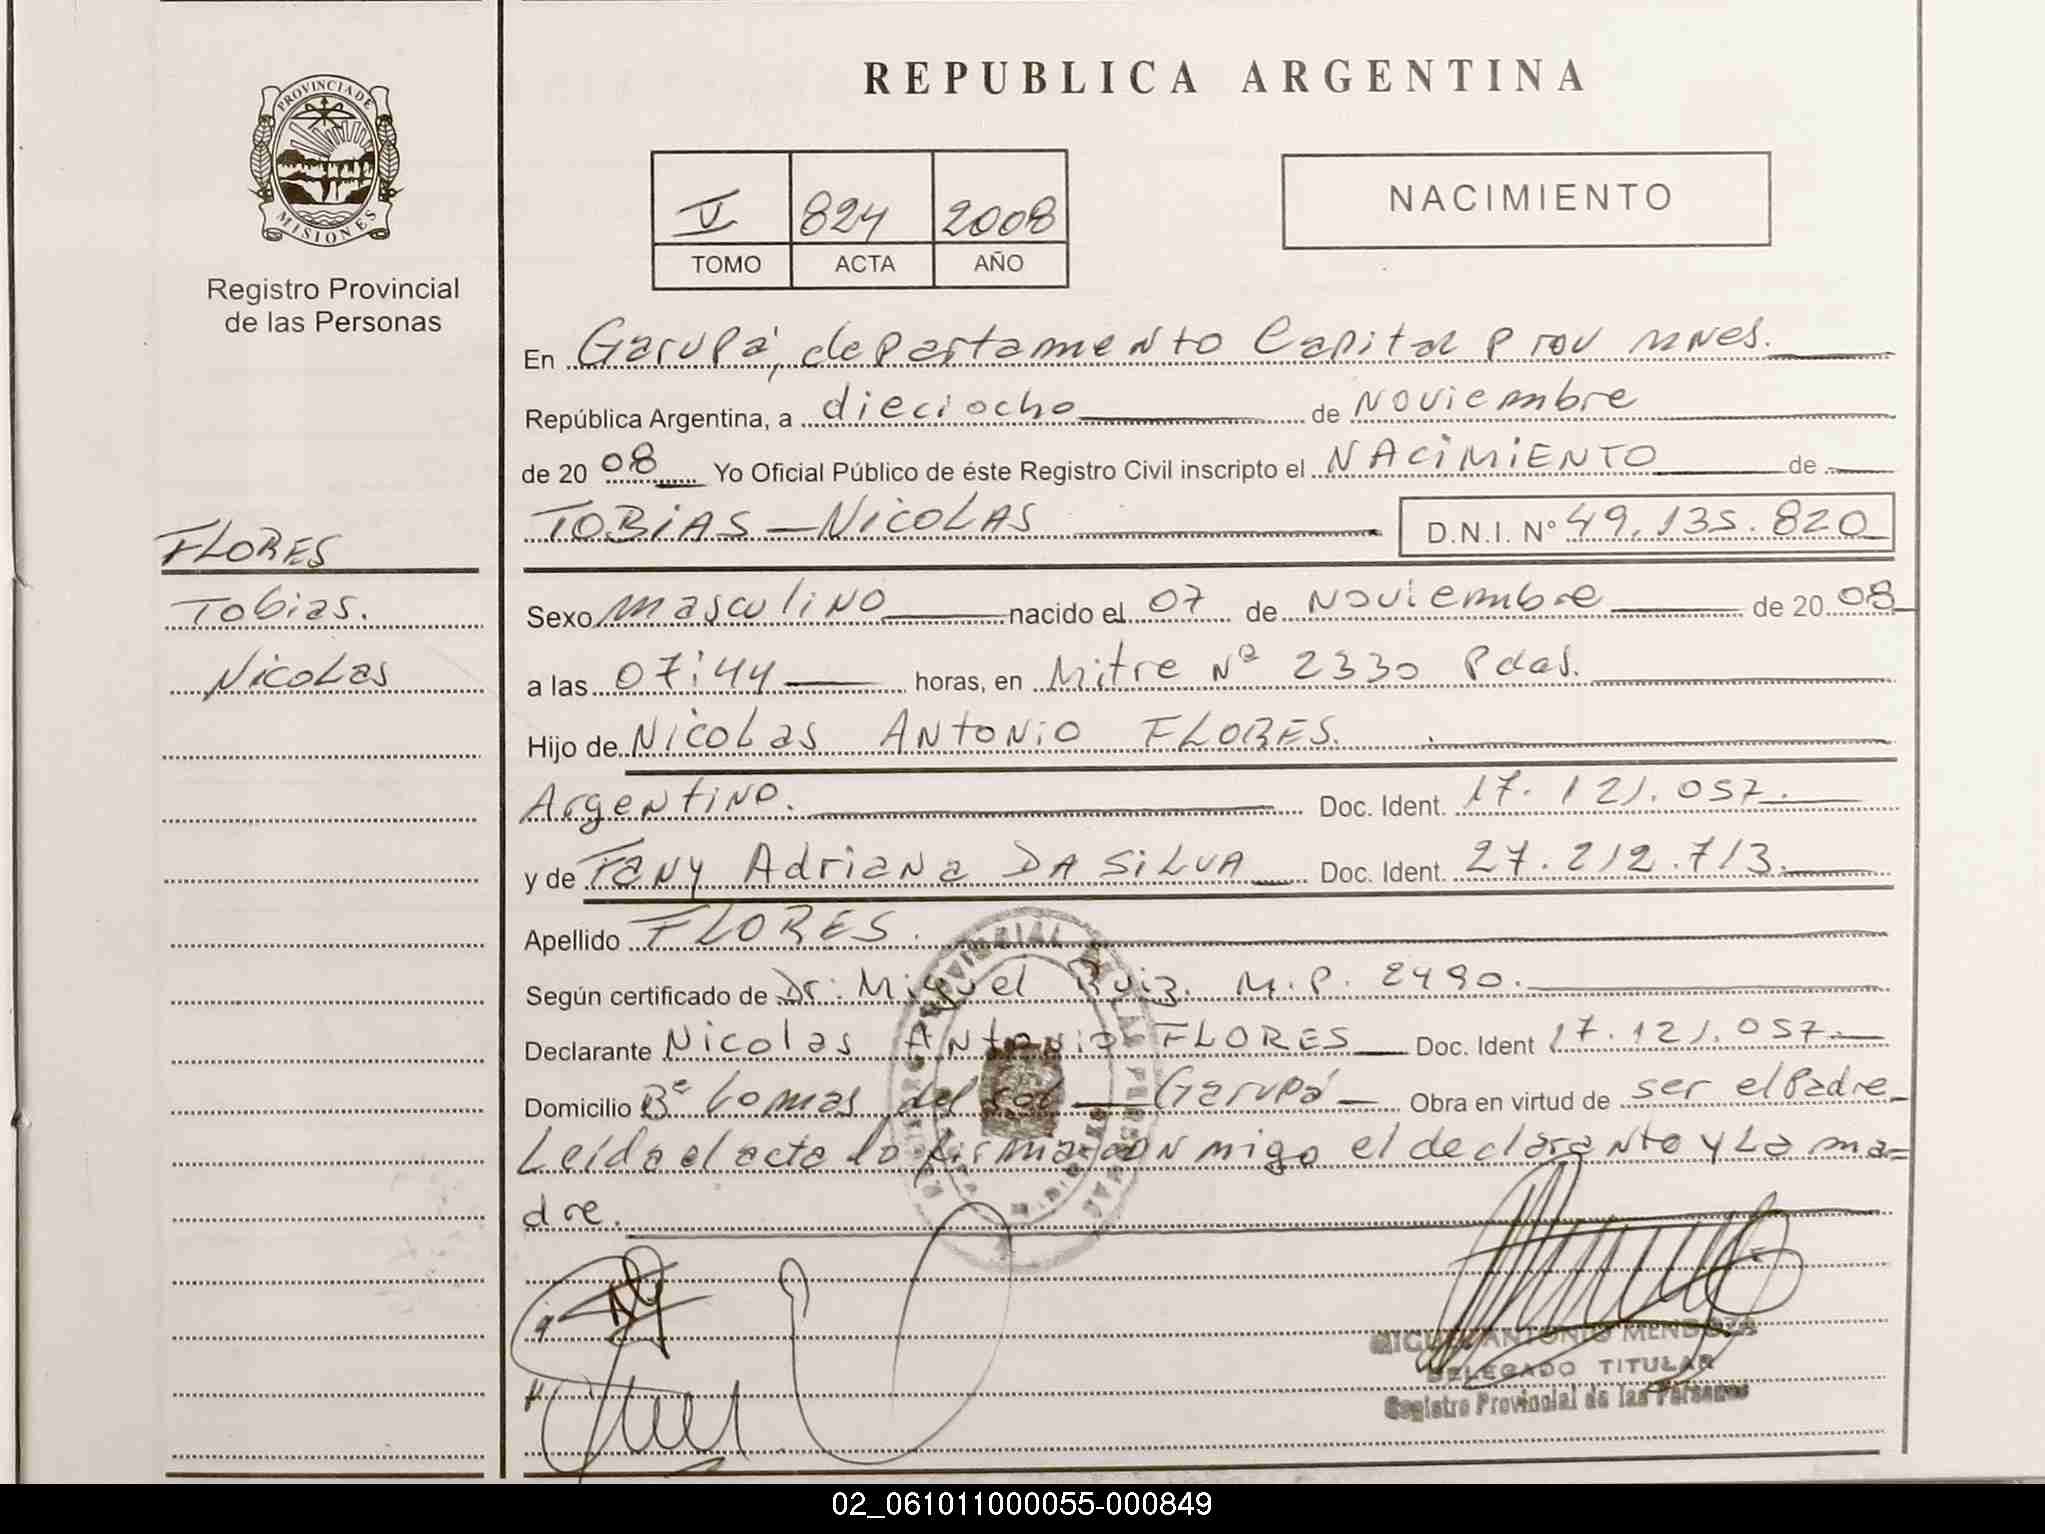 PROVINCIA DE
MISIONES
Registro Provincial
de las Personas
FLORES
Tobias.
Nicolas
REPUBLICA ARGENTINA
V 824 2008
TOMO ACTA AÑO
NACIMIENTO
En Garupá, departamento Capital Prov mnes.
República Argentina, a dieciocho de noviembre
de 2008 Yo Oficial Público de éste Registro Civil inscripto el NACIMIENTO de
TOBIAS - NICOLAS D.N.I. Nº 49.135.820
Sexo masculino nacido el 07 de noviembre de 2008
a las 07:44 horas, en Mitre Nº 2330 Pdas.
Hijo de Nicolas Antonio FLORES.
Argentino. Doc. Ident. 17.121.057.
y de Fany Adriana DA SILVA Doc. Ident. 27.212.713.
Apellido FLORES.
Según certificado de Dr. Miguel Ruiz. M.P. 2490.
Declarante Nicolas Antonio FLORES Doc. Ident 17.121.057.
Domicilio Bº Lomas del sol - Garupá - Obra en virtud de ser el Padre
Leída el acta la firma con migo el declarante y La ma=
dre.
MIGUEL ANTONIO MENDOZA
DELEGADO TITULAR
Registro Provincial de las Personas
02_061011000055-000849